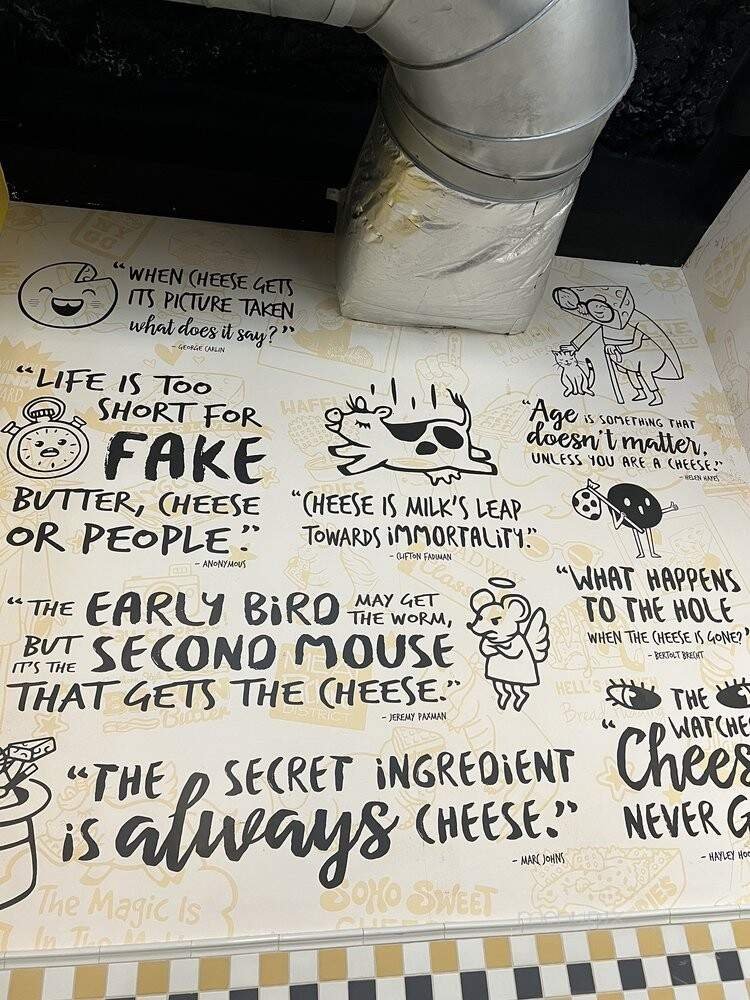 “WHEN CHEESE GETS
ITS PICTURE TAKEN
what does it say?”
- GEORGE CARLIN
“LIFE IS TOO
SHORT FOR
FAKE
BUTTER, CHEESE
OR PEOPLE.”
- ANONYMOUS
“CHEESE IS MILK'S LEAP
TOWARDS IMMORTALITY.”
- CLIFTON FADIMAN
“Age IS SOMETHING THAT
doesn't matter,
UNLESS YOU ARE A CHEESE.”
- HELEN HAYES
“WHAT HAPPENS
TO THE HOLE
WHEN THE CHEESE IS GONE?”
- BERTOLT BRECHT
“THE EARLY BIRD MAY GET
THE WORM,
BUT
IT'S THE SECOND MOUSE
THAT GETS THE CHEESE.”
- JEREMY PAXMAN
THE
WATCHE
“Chees
NEVER G
- HAYLEY HOO
“THE SECRET INGREDIENT
is always CHEESE.”
- MARC JOHNS
The Magic Is
In The
SOHO SWEET